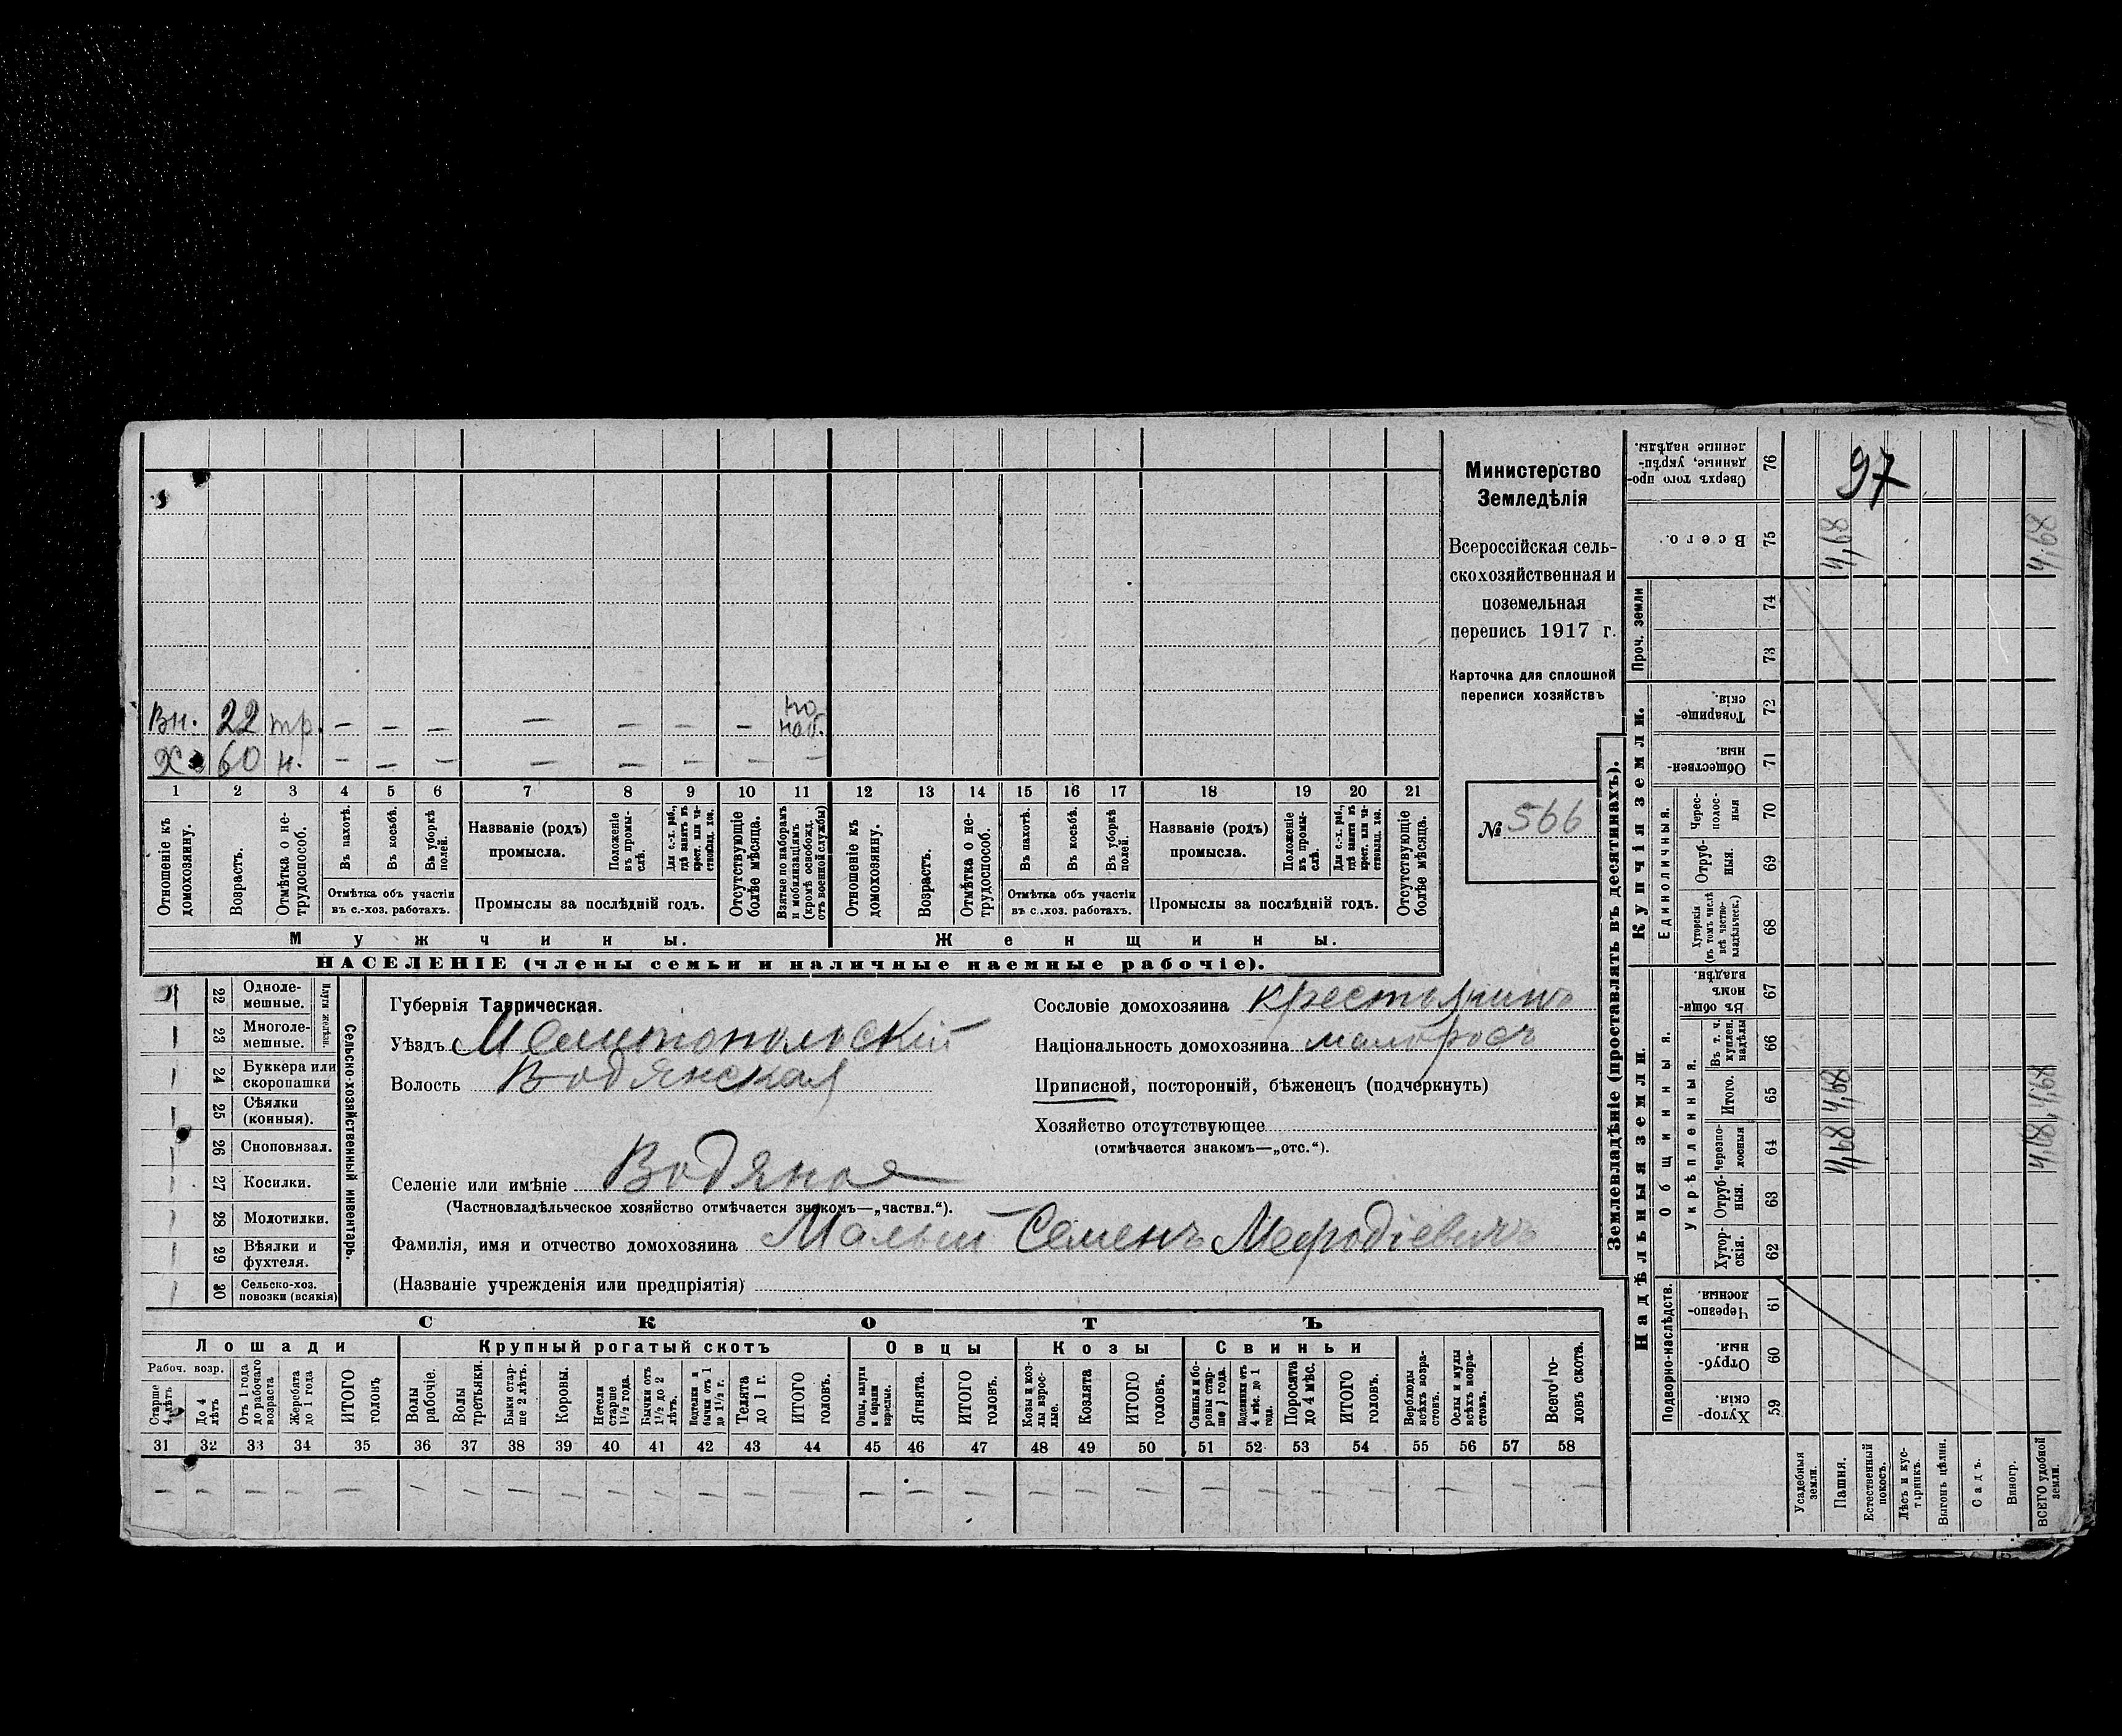 Вн. 22 тр. — — — — — — — по наб.
Х. 60 н. — — — — — — — —
1 2 3 4 5 6 7 8 9 10 11 12 13 14 15 16 17 18 19 20 21
Отношеніе къ домохозяину.
Возрастъ.
Отмѣтка о нетрудоспособ.
Въ пахотѣ.
Въ косьбѣ.
Въ уборкѣ полей.
Отмѣтка объ участіи
въ с.-хоз. работахъ.
Названіе (родъ)
промысла.
Положеніе въ промыслѣ.
Для с.-х. раб., гдѣ занятъ въ крест. или частновлад. хоз.
Промыслы за послѣдній годъ.
Отсутствующіе болѣе мѣсяца.
Взятые по наборамъ и мобилизаціямъ (кромѣ освобожд. отъ военной службы)
Отношеніе къ домохозяину.
Возрастъ.
Отмѣтка о нетрудоспособ.
Въ пахотѣ.
Въ косьбѣ.
Въ уборкѣ полей.
Отмѣтка объ участіи
въ с.-хоз. работахъ.
Названіе (родъ)
промысла.
Положеніе въ промыслѣ.
Для с.-х. раб., гдѣ занятъ въ крест. или частновлад. хоз.
Промыслы за послѣдній годъ.
Отсутствующіе болѣе мѣсяца.
Мужчины. Женщины.
НАСЕЛЕНІЕ (члены семьи и наличные наемные рабочіе).
Министерство
Земледѣлія
Всероссійская сель-
скохозяйственная и
поземельная
перепись 1917 г.
Карточка для сплошной
переписи хозяйствъ
№ 566
22 Однолемешные.
23 Многолемешные.
Плуги желѣзн.
24 Буккера или скоропашки
25 Сѣялки (конныя).
26 Сноповязал.
27 Косилки.
28 Молотилки.
29 Вѣялки и фухтеля.
30 Сельско-хоз. повозки (всякія)
Сельско-хозяйственный инвентарь.
Губернія Таврическая.
Уѣздъ Мелитопольскій
Волость Водянская
Сословіе домохозяина крестьянинъ
Національность домохозяина малороссъ
Приписной, посторонній, бѣженецъ (подчеркнуть)
Хозяйство отсутствующее
(отмѣчается знакомъ—„отс.“).
Селеніе или имѣніе Водяное
(Частновладѣльческое хозяйство отмѣчается знакомъ—„частвл.“).
Фамилія, имя и отчество домохозяина Малый Семенъ Мефодіевичъ
(Названіе учрежденія или предпріятія)
СКОТЪ
Лошади Крупный рогатый скотъ Овцы Козы Свиньи
Рабоч. возр.
Старше 4 лѣтъ
До 4 лѣтъ
Отъ 1 года до рабочаго возраста
Жеребята до 1 года
ИТОГО головъ
Волы рабочіе.
Волы третьяки.
Быки старше 2 лѣтъ.
Коровы.
Нетели старше 1½ года.
Бычки отъ 1½ до 2 лѣтъ.
Подтелки и бычки отъ 1 до 1½ г.
Телята до 1 г.
ИТОГО головъ.
Овцы, валухи и бараны взрослые.
Ягнята.
ИТОГО головъ.
Козы и козлы взрослые.
Козлята
ИТОГО головъ.
Свиньи и боровы старше 1 года.
Подсвинки отъ 4 мѣс. до 1 года.
Поросята до 4 мѣс.
ИТОГО головъ.
Верблюды всѣхъ возрастовъ.
Ослы и мулы всѣхъ возрастовъ.
Всего головъ скота.
31 32 33 34 35 36 37 38 39 40 41 42 43 44 45 46 47 48 49 50 51 52 53 54 55 56 57 58
— — — — — — — — — — — — — — — — — — — — — — — — — — —
Землевладѣніе (проставлять въ десятинахъ).
Надѣльныя земли. Купчія земли.
Проч. земли
Подворно-наслѣдств.
Общинныя.
Укрѣпленныя.
Единоличныя.
76 Сверхъ того проданные, укрѣпленные надѣлы.
97
75 Всего. 4,68 4,68
74
73
72 Товарищескія.
71 Общественныя.
70 Чересполосныя
69 Отрубныя.
68 Хуторскія (въ томъ числѣ всѣ частновладѣльческ.)
67 Въ общинномъ владѣн.
66 Въ т. ч. куплен. надѣлы
65 Итого. 4,68 4,68
64 Черезполосныя 4,68 4,68
63 Отрубныя.
62 Хуторскія.
61 Черезполосныя.
60 Отрубныя.
59 Хуторскія
Усадебныя земли.
Пашня.
Естественный покосъ.
Лѣсъ и кустарникъ.
Выгонъ цѣлин.
Садъ.
Виногр.
ВСЕГО удобной земли.